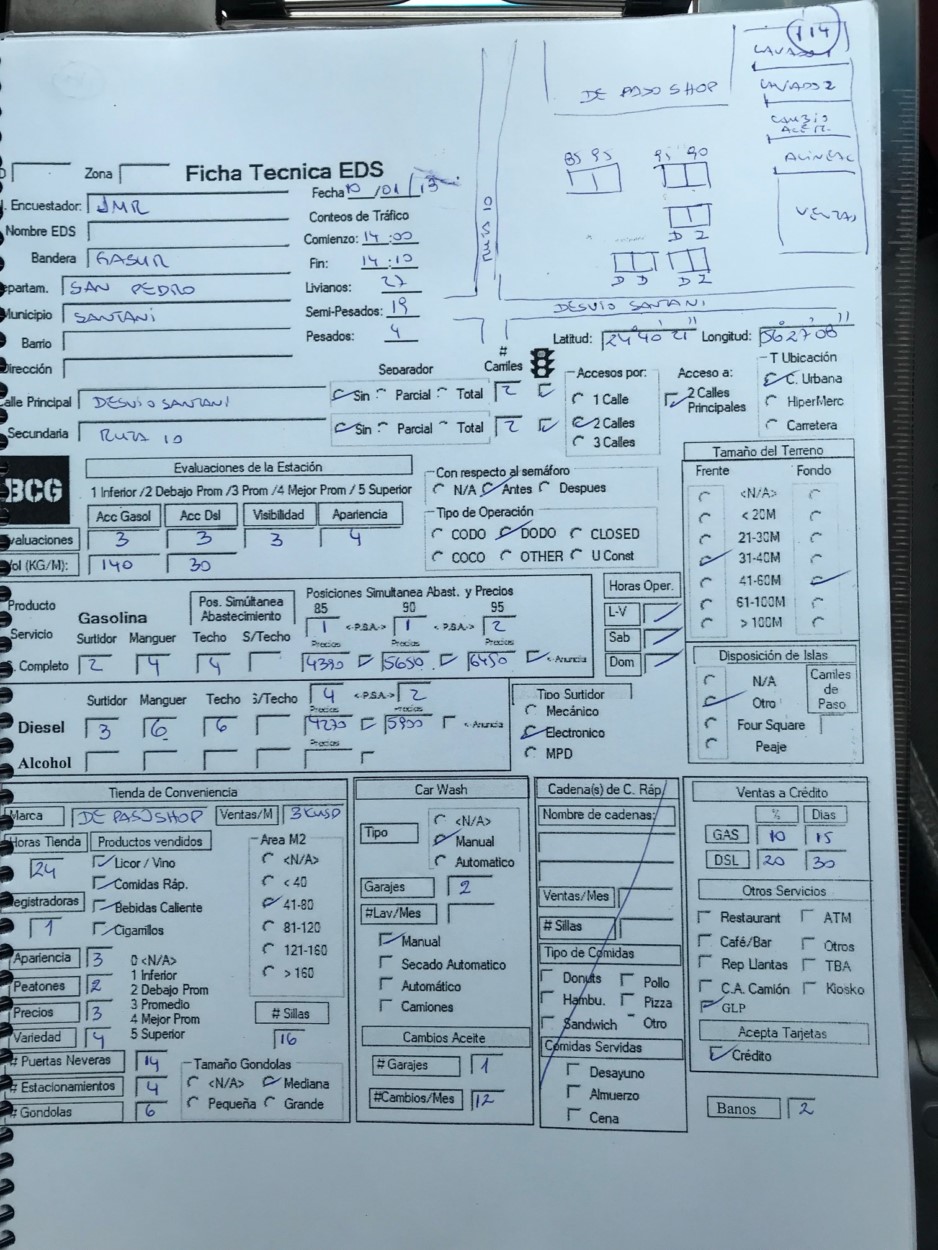 114
LAVADO 1
DE PASO SHOP
LAVADO 2
CAMBIO
ACEIT.
ALINEAC
85 95
95 90
VENTAS
D Z
D D D Z
RUTA 10
DESVIO SANTANI
Zona
Ficha Tecnica EDS
Fecha 10 /01 /13
Encuestador: JMR
Conteos de Tráfico
Nombre EDS
Comienzo: 14:00
Bandera GASUR
Fin: 14:10
epartam. SAN PEDRO
Livianos: 27
Municipio SANTANI
Semi-Pesados: 19
Barrio
Pesados: 4
Latitud: 24° 40' 21" Longitud: 56° 27' 08"
Dirección
Separador # Carriles Accesos por: Acceso a: T Ubicación
alle Principal DESVIO SANTANI Sin Parcial Total 2 1 Calle 2 Calles Principales C. Urbana
Secundaria RUTA 10 Sin Parcial Total 2 2 Calles HiperMerc
3 Calles Carretera
BCG
Evaluaciones de la Estación
1 Inferior /2 Debajo Prom /3 Prom /4 Mejor Prom / 5 Superior
Acc Gasol Acc Dsl Visibilidad Apariencia
valuaciones 3 3 3 4
ol (KG/M): 140 30
Con respecto al semáforo
N/A Antes Despues
Tipo de Operación
CODO DODO CLOSED
COCO OTHER U Const
Tamaño del Terreno
Frente Fondo
<N/A>
< 20M
21-30M
31-40M
41-60M
61-100M
> 100M
Producto
Servicio
Gasolina
Pos. Simúltanea
Abastecimiento
Posiciones Simultanea Abast. y Precios
85 90 95
1 <-P.S.A.-> 1 <-P.S.A.-> 2
Surtidor Manguer Techo S/Techo Precios Precios Precios
S. Completo 2 4 4 4390 5650 6450 <-Anuncia
Horas Oper.
L-V
Sab
Dom
Surtidor Manguer Techo S/Techo 4 <-P.S.A-> 2
Precios Precios
Diesel 3 6 6 4270 5930 <-Anuncia
Precios
Alcohol
Tipo Surtidor
Mecánico
Electronico
MPD
Disposición de Islas
N/A
Otro
Four Square
Peaje
Carriles
de
Paso
Tienda de Conveniencia
Marca DE PASO SHOP Ventas/M 3KUSD
Horas Tienda Productos vendidos
24
Licor / Vino
Comidas Ráp.
egistradoras
1
Bebidas Caliente
Cigarrillos
Area M2
<N/A>
< 40
41-80
81-120
121-160
> 160
Apariencia 3
Peatones 2
Precios 3
Variedad 4
0 <N/A>
1 Inferior
2 Debajo Prom
3 Promedio
4 Mejor Prom
5 Superior
# Sillas
16
# Puertas Neveras 14
# Estacionamientos 4
# Gondolas 6
Tamaño Gondolas
<N/A> Mediana
Pequeña Grande
Car Wash
Tipo
<N/A>
Manual
Automatico
Garajes 2
#Lav/Mes
Manual
Secado Automatico
Automático
Camiones
Cambios Aceite
# Garajes 1
#Cambios/Mes 12
Cadena(s) de C. Ráp.
Nombre de cadenas:
Ventas/Mes
# Sillas
Tipo de Comidas
Donuts Pollo
Hambu. Pizza
Sandwich Otro
Comidas Servidas
Desayuno
Almuerzo
Cena
Ventas a Crédito
% Dias
GAS 10 15
DSL 20 30
Otros Servicios
Restaurant ATM
Café/Bar Otros
Rep Llantas TBA
C.A. Camión Kiosko
GLP
Acepta Tarjetas
Crédito
Banos 2